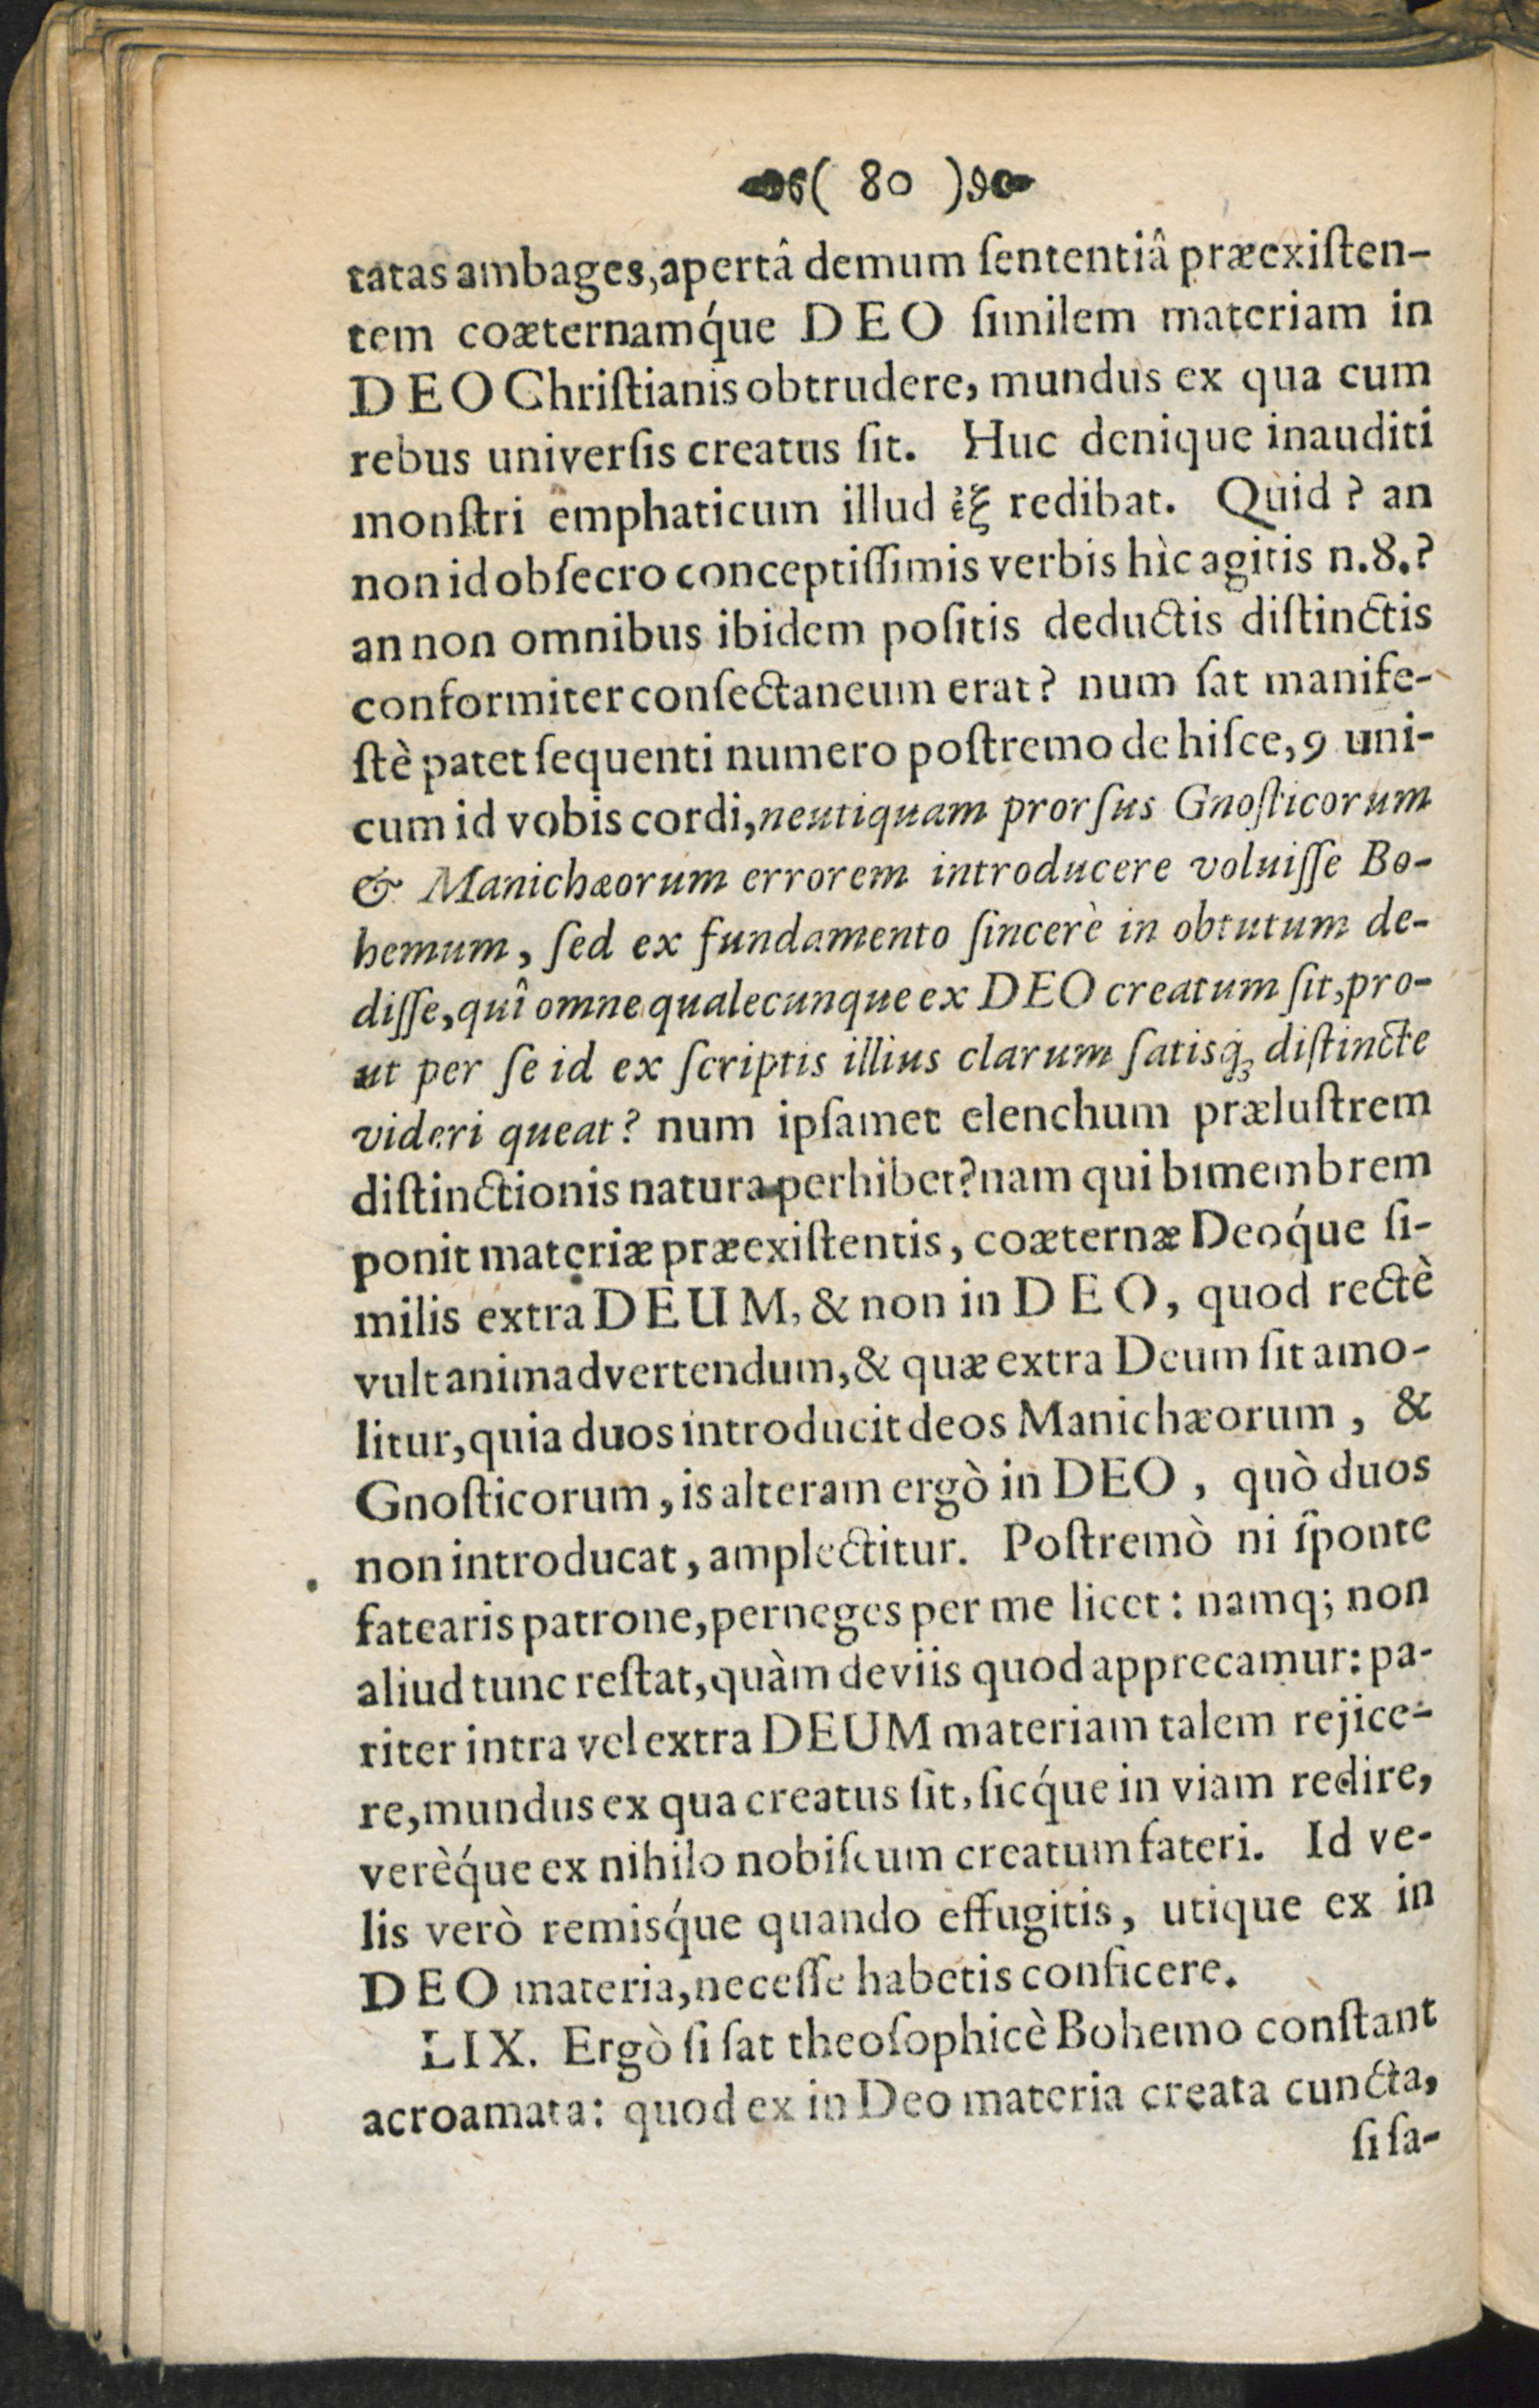 ( 80 )
tatas ambages, apertâ demum ſententiâ præexiſten-
tem coæternamq́ue DEO ſimilem materiam in
DEO Chriſtianis obtrudere, mundus ex qua cum
rebus univerſis creatus ſit. Huc denique inauditi
monſtri emphaticum illud ἐξ redibat. Quid ? an
non id obſecro conceptiſſimis verbis hìc agitis n.8.?
an non omnibus ibidem poſitis deductis diſtinctis
conformiter conſectaneum erat? num ſat manife-
ſtè patet ſequenti numero poſtremo de hiſce, 9 uni-
cum id vobis cordi, neutiquam prorſus Gnoſticorum
& Manichæorum errorem introducere voluiſſe Bo-
hemum, ſed ex fundamento ſincerè in obtutum de-
diſſe, quî omne qualecunque ex DEO creatum ſit, pro-
ut per ſe id ex ſcriptis illius clarum ſatisq́ꝫ diſtincte
videri queat? num ipſamet elenchum præluſtrem
diſtinctionis natura perhibet? nam qui bimembrem
ponit materiæ præexiſtentis, coæternæ Deoq́ue ſi-
milis extra DEUM, & non in DEO, quod rectè
vult animadvertendum, & quæ extra Deum ſit amo-
litur, quia duos introducit deos Manichæorum, &
Gnoſticorum, is alteram ergò in DEO, quò duos
non introducat, amplectitur. Poſtremò ni ſponte
fatearis patrone, perneges per me licet: namq; non
aliud tunc reſtat, quàm deviis quod apprecamur: pa-
riter intra vel extra DEUM materiam talem rejice-
re, mundus ex qua creatus ſit, ſicq́ue in viam redire,
verèq́ue ex nihilo nobiſcum creatum fateri. Id ve-
lis verò remisq́ue quando effugitis, utique ex in
DEO materia, neceſſe habetis conficere.
LIX. Ergò ſi ſat theoſophicè Bohemo conſtant
acroamata: quod ex in Deo materia creata cuncta,
ſi ſa-